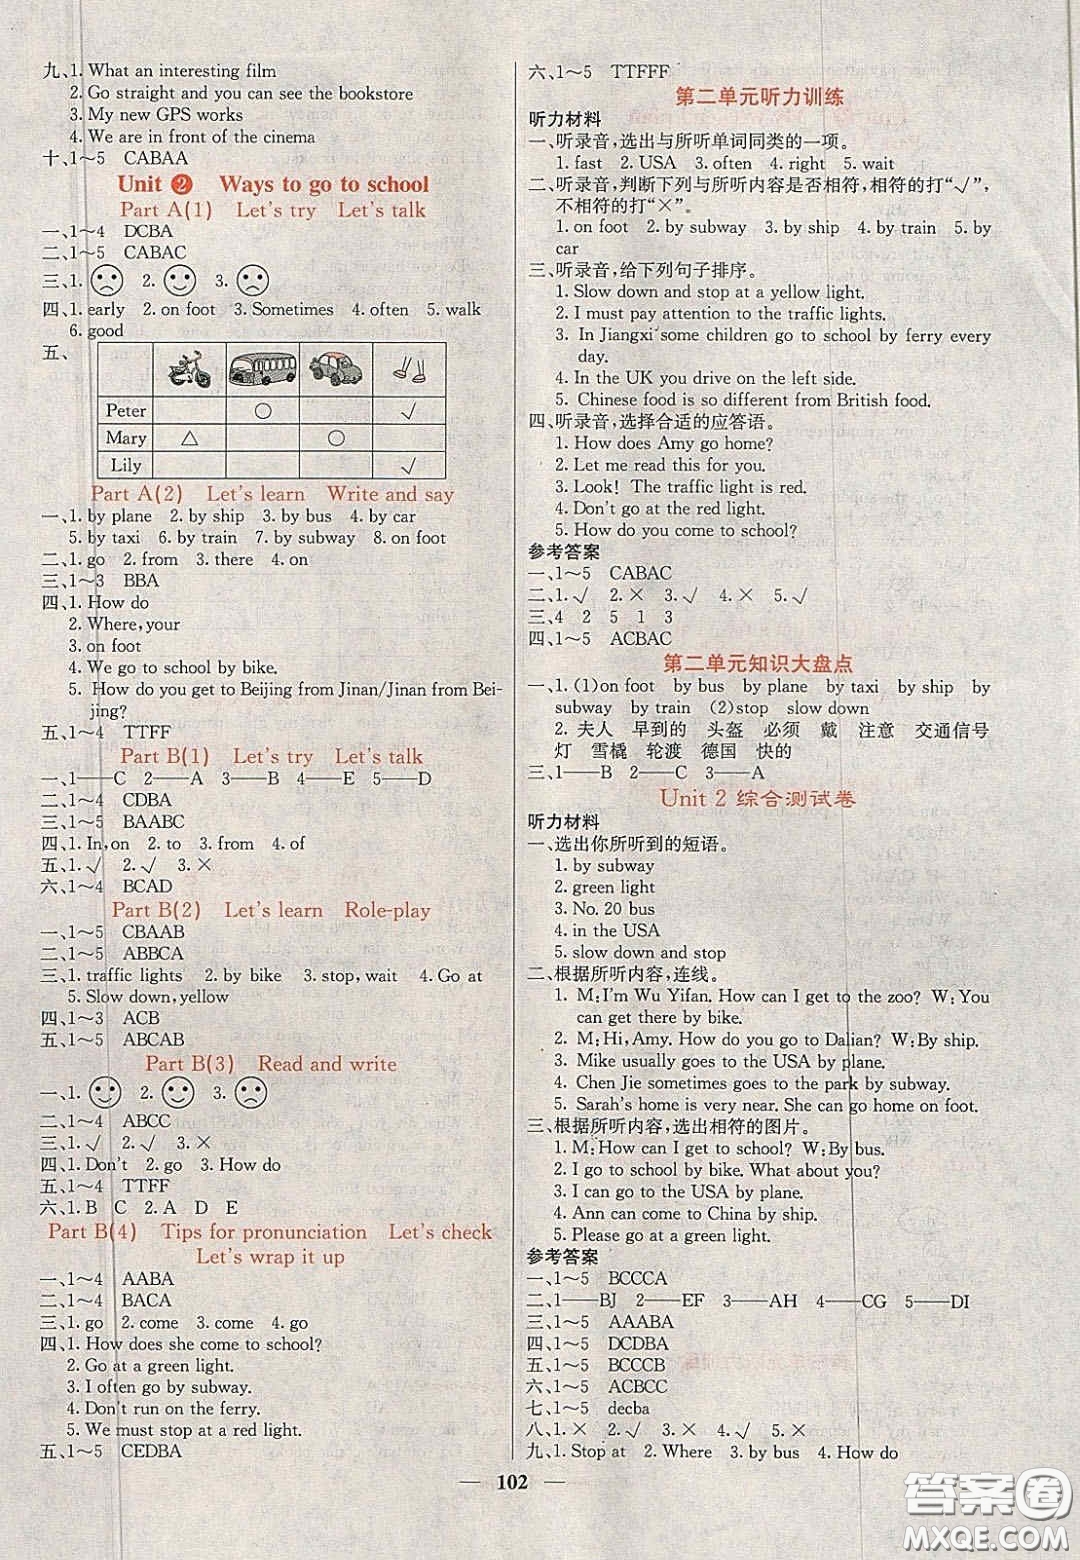 九、1. What an interesting film
2. Go straight and you can see the bookstore
3. My new GPS works
4. We are in front of the cinema
十、1～5 CABAA
Unit 2 Ways to go to school
Part A(1) Let's try Let's talk
一、1～4 DCBA
二、1～5 CABAC
三、1. 2. 3.
四、1. early 2. on foot 3. Sometimes 4. often 5. walk
6. good
五、
Peter ○ √
Mary △ ○
Lily √
Part A(2) Let's learn Write and say
一、1. by plane 2. by ship 3. by bus 4. by car
5. by taxi 6. by train 7. by subway 8. on foot
二、1. go 2. from 3. there 4. on
三、1～3 BBA
四、1. How do
2. Where, your
3. on foot
4. We go to school by bike.
5. How do you get to Beijing from Jinan/Jinan from Bei-
jing?
五、1～4 TTFF
Part B(1) Let's try Let's talk
一、1——C 2——A 3——B 4——E 5——D
二、1～4 CDBA
三、1～5 BAABC
四、1. In, on 2. to 3. from 4. of
五、1. √ 2. √ 3. ×
六、1～4 BCAD
Part B(2) Let's learn Role-play
一、1～5 CBAAB
二、1～5 ABBCA
三、1. traffic lights 2. by bike 3. stop, wait 4. Go at
5. Slow down, yellow
四、1～3 ACB
五、1～5 ABCAB
Part B(3) Read and write
一、1. 2. 3.
二、1～4 ABCC
三、1. √ 2. √ 3. ×
四、1. Don't 2. go 3. How do
五、1～4 TTFF
六、1. B C 2. A D E
Part B(4) Tips for pronunciation Let's check
Let's wrap it up
一、1～4 AABA
二、1～4 BACA
三、1. go 2. come 3. come 4. go
四、1. How does she come to school?
2. Go at a green light.
3. I often go by subway.
4. Don't run on the ferry.
5. We must stop at a red light.
五、1～5 CEDBA
六、1～5 TTFFF
第二单元听力训练
听力材料
一、听录音,选出与所听单词同类的一项。
1. fast 2. USA 3. often 4. right 5. wait
二、听录音,判断下列与所听内容是否相符,相符的打“√”,
不相符的打“×”。
1. on foot 2. by subway 3. by ship 4. by train 5. by
car
三、听录音,给下列句子排序。
1. Slow down and stop at a yellow light.
2. I must pay attention to the traffic lights.
3. In Jiangxi some children go to school by ferry every
day.
4. In the UK you drive on the left side.
5. Chinese food is so different from British food.
四、听录音,选择合适的应答语。
1. How does Amy go home?
2. Let me read this for you.
3. Look! The traffic light is red.
4. Don't go at the red light.
5. How do you come to school?
参考答案
一、1～5 CABAC
二、1. √ 2. × 3. √ 4. × 5. √
三、4 2 5 1 3
四、1～5 ACBAC
第二单元知识大盘点
一、1. (1)on foot by bus by plane by taxi by ship by
subway by train (2)stop slow down
2. 夫人 早到的 头盔 必须 戴 注意 交通信号
灯 雪橇 轮渡 德国 快的
三、1——B 2——C 3——A
Unit 2 综合测试卷
听力材料
一、选出你所听到的短语。
1. by subway
2. green light
3. No. 20 bus
4. in the USA
5. slow down and stop
二、根据所听内容,连线。
1. M: I'm Wu Yifan. How can I get to the zoo? W: You
can get there by bike.
2. M: Hi, Amy. How do you go to Dalian? W: By ship.
3. Mike usually goes to the USA by plane.
4. Chen Jie sometimes goes to the park by subway.
5. Sarah's home is very near. She can go home on foot.
三、根据所听内容,选出相符的图片。
1. M: How can I get to school? W: By bus.
2. I go to school by bike. What about you?
3. I can go to the USA by plane.
4. Ann can come to China by ship.
5. Please go at a green light.
参考答案
一、1～5 BCCCA
二、1——BJ 2——EF 3——AH 4——CG 5——DI
三、1～5 AAABA
四、1～5 DCDBA
五、1～5 BCCCB
六、1～5 ACBCC
七、1～5 decba
八、1. × 2. √ 3. × 4. √ 5. ×
九、1. Stop at 2. Where 3. by bus 4. How do
102
答案圈
MXQE.COM